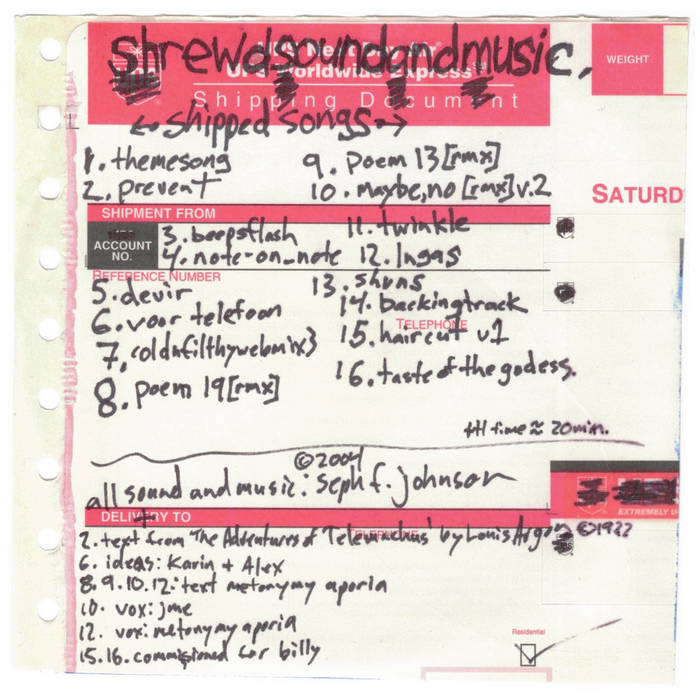 shrewdsoundandmusic.
UPS Next Day Air®
UPS Worldwide Express℠
Shipping Document
WEIGHT
shipped songs
1. themesong
2. prevent
SHIPMENT FROM
ACCOUNT NO.
3. beepsflash
4. note-on_note
REFERENCE NUMBER
5. devir
6. voor telefoon
7. coldnfilthywebmix3
8. poem 19[rmx]
9. poem 13[rmx]
10. maybe,no [rmx]v.2
SATURD
11. twinkle
12. Ingas
13. shuns
14. backingtrack
TELEPHONE
15. haircut v1
16. taste of the godess.
ttl time ≈ 20min.
©2004
all sound and music: seph f. johnson
EXTREMELY U
DELIVERY TO
TELEPHONE
2. text from 'The Adventures of Telemachus' by Louis Aragon ©1922
6. ideas: Karin + Alex
8.9.10.12: text metonymy aporia
10. vox: jme
12. vox: metonymy aporia
15.16. commisioned for billy
Residential